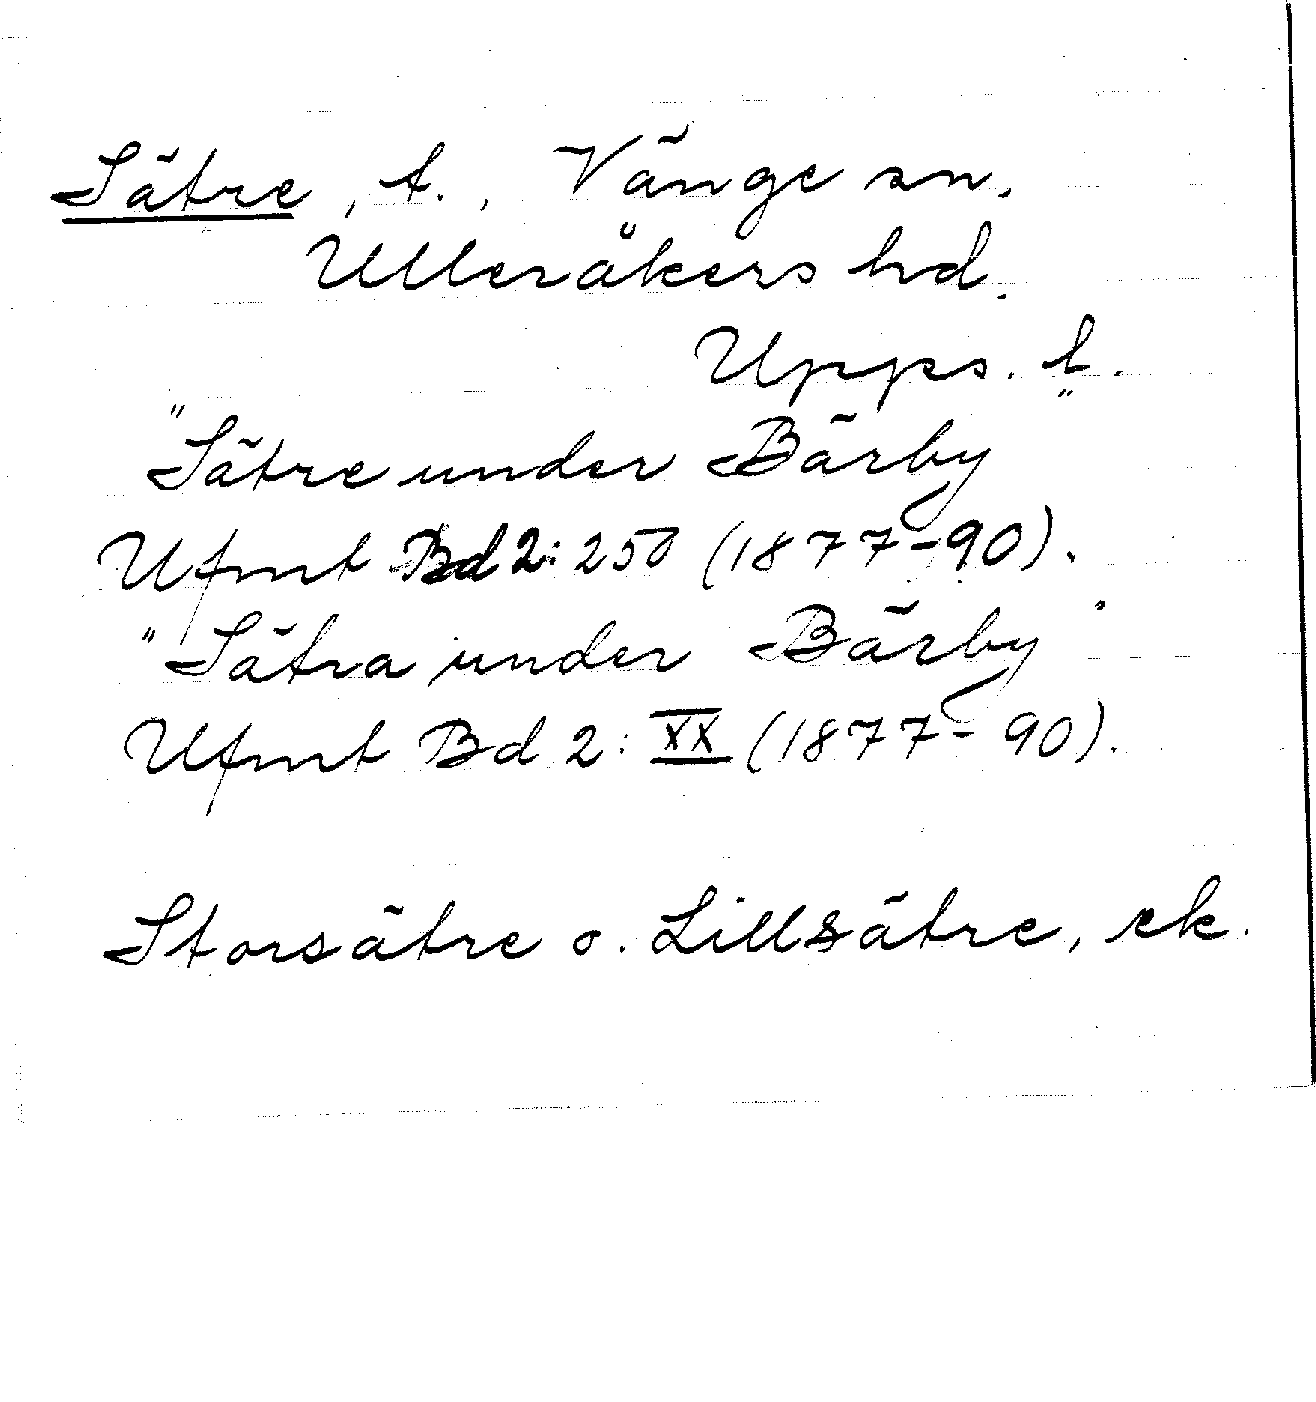 Sätre, t., Vänge sn.
Ulleråkers hd.
Upps. l.
"Sätre under Bärby"
Ufmt Bd 2: 250 (1877-90).
"Sätra under Bärby"
Ufmt Bd 2: XX (1877-90).
Storsätre o. Lillsätre, ek.